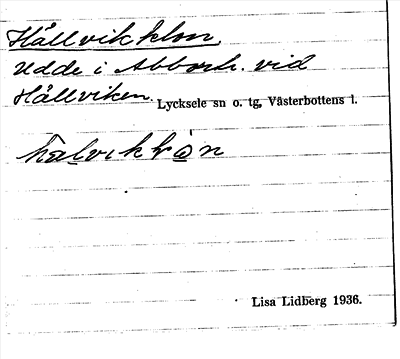 Hållvikklon.
Udde i Abborrh. vid
Hållviken. Lycksele sn o. tg, Västerbottens l.
Lisa Lidberg 1936.